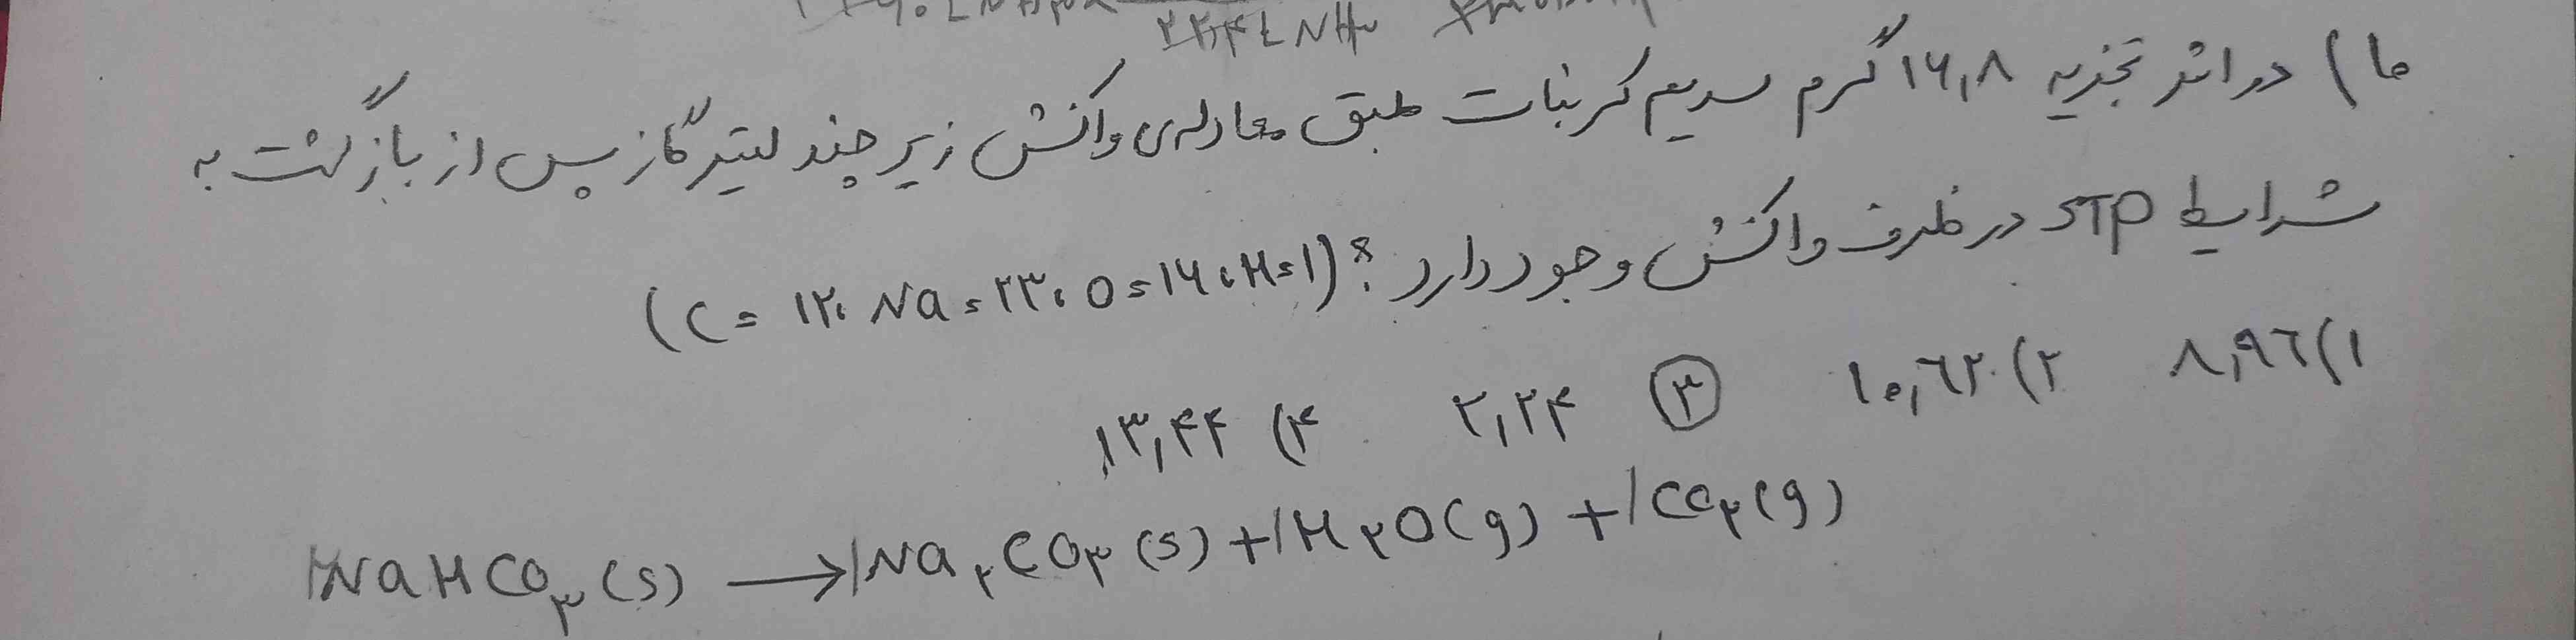 ۲۲٫۴ L NH۳
۱۵) در اثر تجزیه ۱۶٫۸ گرم سدیم کربنات طبق معادله‌ی واکنش زیر چند لیتر گاز پس از بازگشت به
شرایط STP در ظرف واکنش وجود دارد؟ (C = ۱۲، Na = ۲۳، O = ۱۶، H = ۱)
۱) ۸٫۹۶ ۲) ۱۰٫۶۲ ۳ ۲٫۲۴ ۴) ۱۳٫۴۴
۲NaHCO۳(s) → ۱Na۲CO۳(s) + ۱H۲O(g) + ۱CO۲(g)